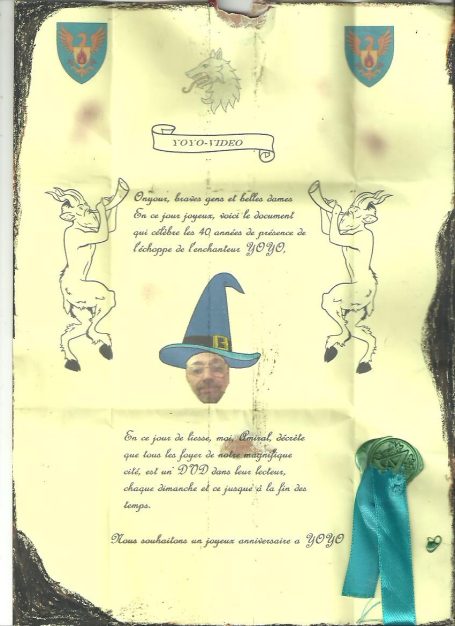 YOYO-VIDEO
Onyour, braves gens et belles dames
En ce jour joyeux, voici le document
qui célèbre les 40 années de présence de
l'échoppe de l'enchanteur YOYO,
En ce jour de liesse, moi, Amiral, décrète
que tous les foyer de notre magnifique
cité, est un DVD dans leur lecteur,
chaque dimanche et ce jusque à la fin des
temps.
Nous souhaitons un joyeux anniversaire a YOYO